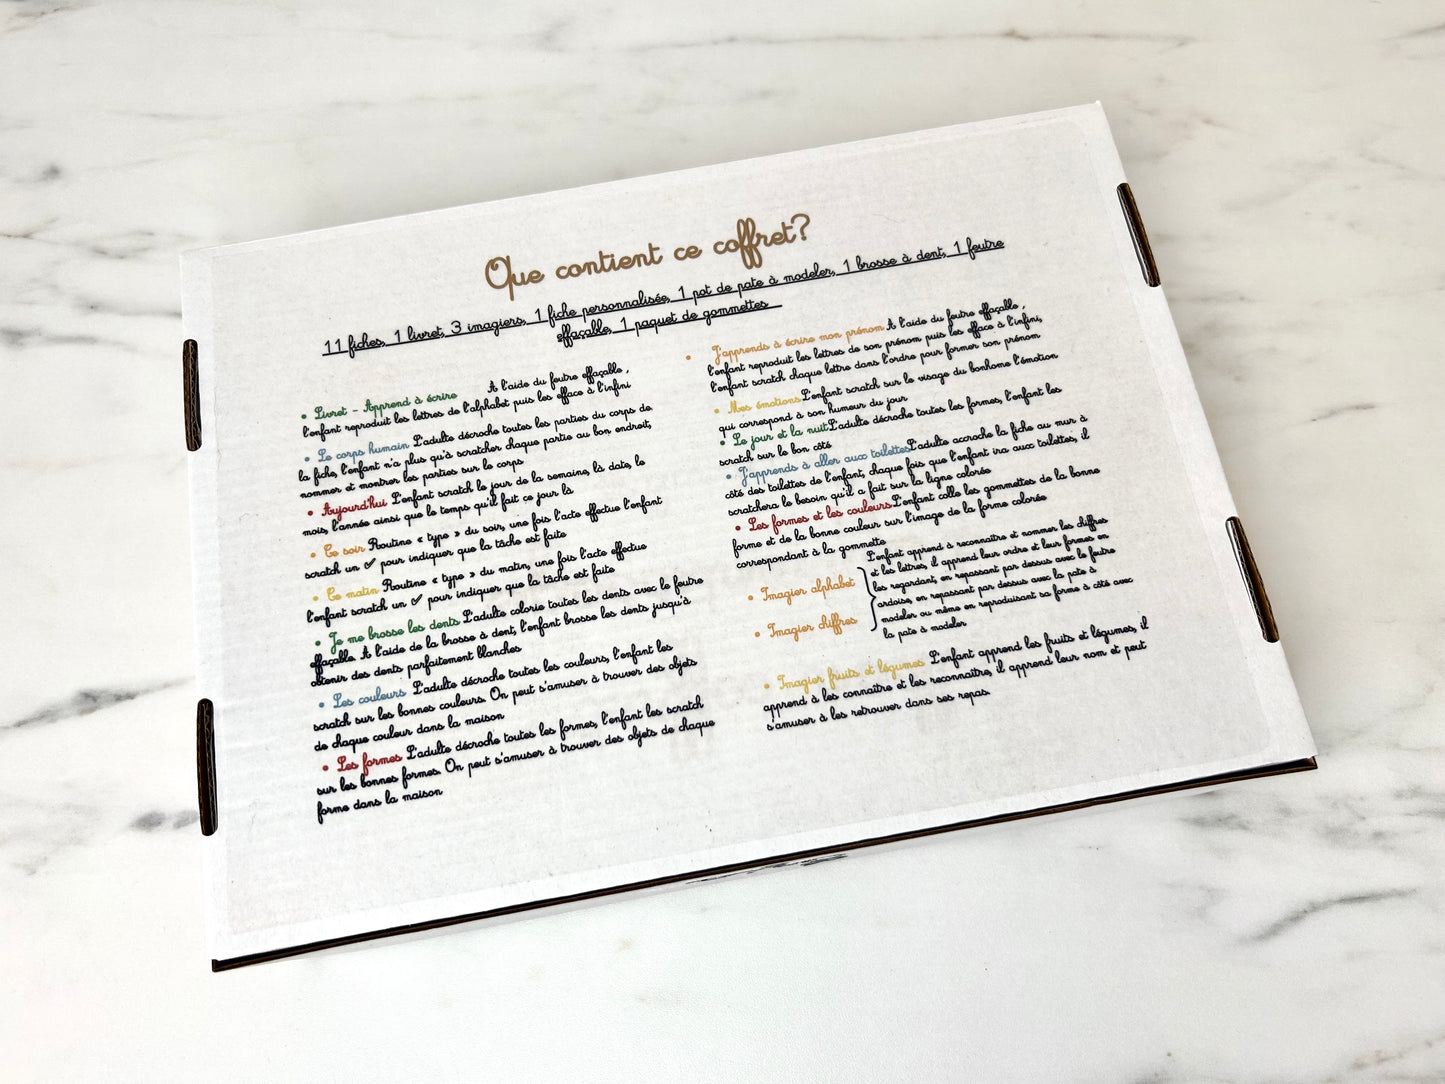 Que contient ce coffret?
11 fiches, 1 livret, 3 imagiers, 1 fiche personnalisée, 1 pot de pate à modeler, 1 brosse à dent, 1 feutre
effaçable, 1 paquet de gommettes
• Livret - Apprend à écrire A l'aide du feutre effaçable ,
l'enfant reproduit les lettres de l'alphabet puis les efface à l'infini
• Le corps humain L'adulte décroche toutes les parties du corps de
la fiche, l'enfant n'a plus qu'à scratcher chaque partie au bon endroit,
nommer et montrer les parties sur le corps
• Aujourd'hui L'enfant scratch le jour de la semaine, là date, le
mois, l'année ainsi que le temps qu'il fait ce jour là
• Ce soir Routine « type » du soir, une fois l'acte effectue l'enfant
scratch un ✓ pour indiquer que la tâche est faite
• Ce matin Routine « type » du matin, une fois l'acte effectue
l'enfant scratch un ✓ pour indiquer que la tâche est faite
• Je me brosse les dents L'adulte colorie toutes les dents avec le feutre
effaçable. A l'aide de la brosse à dent, l'enfant brosse les dents jusqu'à
obtenir des dents parfaitement blanches
• Les couleurs L'adulte décroche toutes les couleurs, l'enfant les
scratch sur les bonnes couleurs. On peut s'amuser à trouver des objets
de chaque couleur dans la maison
• Les formes L'adulte décroche toutes les formes, l'enfant les scratch
sur les bonnes formes. On peut s'amuser à trouver des objets de chaque
forme dans la maison
• J'apprends à écrire mon prénom A l'aide du feutre effaçable ,
l'enfant reproduit les lettres de son prénom puis les efface à l'infini,
l'enfant scratch chaque lettre dans l'ordre pour former son prénom
• Mes émotions L'enfant scratch sur le visage du bonhome l'émotion
qui correspond à son humeur du jour
• Le jour et la nuit L'adulte décroche toutes les formes, l'enfant les
scratch sur le bon côté
• J'apprends à aller aux toilettes L'adulte accroche la fiche au mur à
côté des toilettes de l'enfant, chaque fois que l'enfant ira aux toilettes, il
scratchera le besoin qu'il a fait sur la ligne colorée
• Les formes et les couleurs L'enfant colle les gommettes de la bonne
forme et de la bonne couleur sur l'image de la forme colorée
correspondant à la gommette
• Imagier alphabet
• Imagier chiffres
L'enfant apprend à reconnaitre et nommer les chiffres
et les lettres, il apprend leur ordre et leur formes en
les regardant, en repassant par dessus avec le feutre
ardoise, en repassant par dessus avec la pate à
modeler ou même en reproduisant sa forme à côté avec
la pate à modeler
• Imagier fruits et légumes L'enfant apprend les fruits et légumes, il
apprend à les connaitre et les reconnaitre, il apprend leur nom et peut
s'amuser à les retrouver dans ses repas.